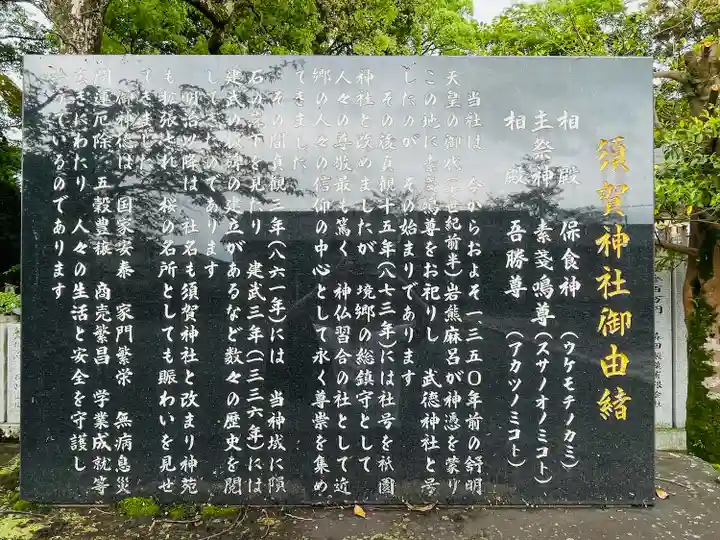 須賀神社御由緒
相殿 保食神(ウケモチノカミ)
主祭神 素戔鳴尊(スサノオノミコト)
相殿 吾勝尊(アカツノミコト)
当社は、今からおよそ一、三五〇年前の舒明
天皇の御代(七世紀前半)岩熊麻呂が神憑を蒙り
この地に素戔鳴尊をお祀りし 武徳神社と号
したのが その始まりであります
その後貞観十五年(八七三年)には社号を祇園
神社と改めましたが、境郷の総鎮守として
人々の尊敬最も篤く 神仏習合の社として近
郷の人々の信仰の中心として永く尊崇を集め
てきました
その間貞観三年(八六一年)には 当神域に隕
石の落下を見たり 建武三年(一三三六年)には
建武の板碑の建立があるなど数々の歴史を閲
してきたのであります
明治以降は 社名も須賀神社と改まり神苑
も拡張され 桜の名所としても賑わいを見せ
てきました
御神徳は 国家安泰 家門繁栄 無病息災
開運厄除 五穀豊穣 商売繁昌 学業成就等
にわたり 人々の生活と安全を守護し
ているのであります
百万円
森田製菓有限会社